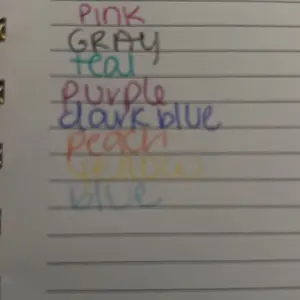 PINK
GRAY
teal
purple
dark blue
peach
yellow
blue